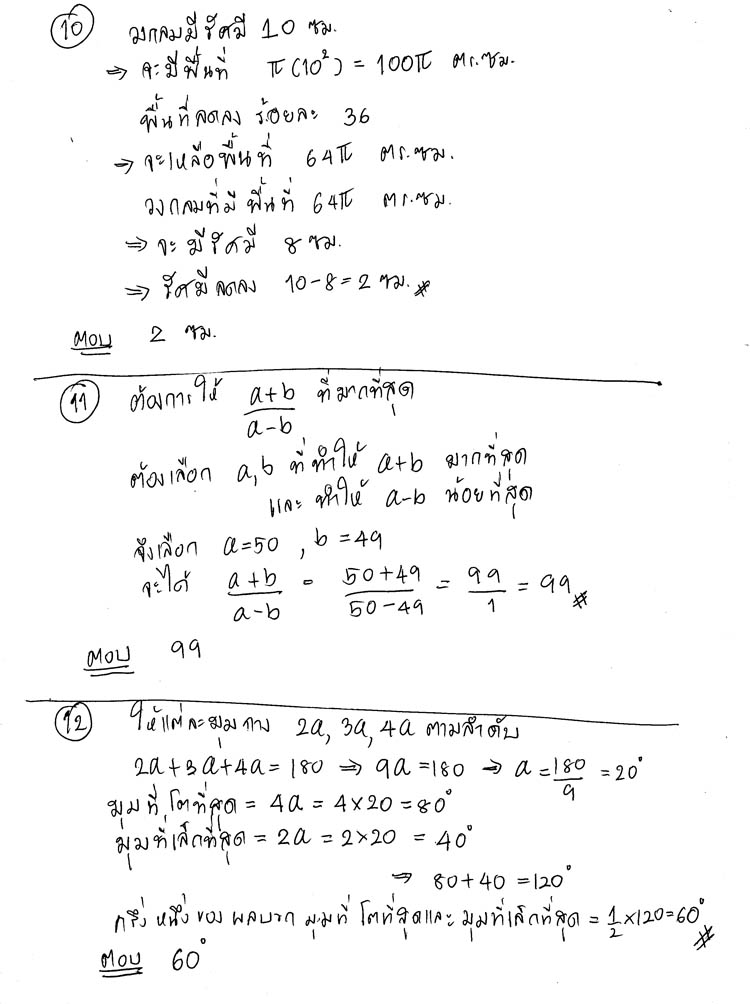 10 วงกลมมีรัศมี 10 ซม.
⇒ จะมีพื้นที่ π(10²) = 100π ตร.ซม.
พื้นที่ลดลง ร้อยละ 36
→ จะเหลือพื้นที่ 64π ตร.ซม.
วงกลมที่มีพื้นที่ 64π ตร.ซม.
⇒ จะมีรัศมี 8 ซม.
⇒ รัศมีลดลง 10-8=2 ซม. #
ตอบ 2 ซม.
11 ต้องการให้ a+b/a-b ที่มากที่สุด
ต้องเลือก a,b ที่ทำให้ a+b มากที่สุด
และ ทำให้ a-b น้อยที่สุด
จึงเลือก a=50 , b=49
จะได้ a+b/a-b = 50+49/50-49 = 99/1 = 99 #
ตอบ 99
12 ให้แต่ละมุมกาง 2a, 3a, 4a ตามลำดับ
2a+3a+4a=180 ⇒ 9a=180 → a=180/9=20°
มุมที่โตที่สุด = 4a = 4×20=80°
มุมที่เล็กที่สุด = 2a = 2×20 = 40°
→ 80+40=120°
ครึ่งหนึ่งของผลบวกมุมที่โตที่สุดและมุมที่เล็กที่สุด = 1/2×120=60° #
ตอบ 60°